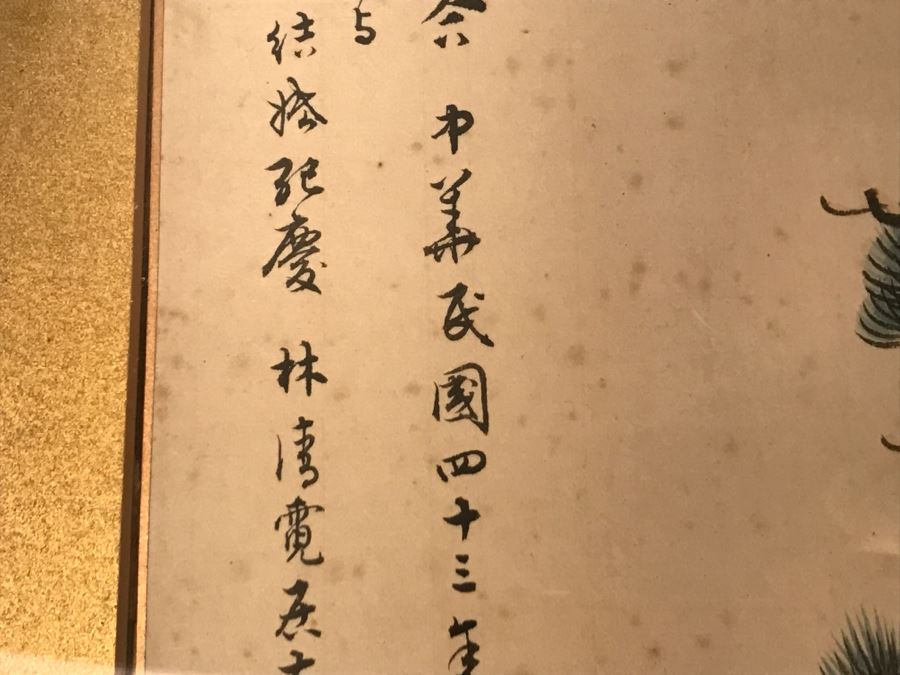 中華民國四十三年
与
結婚紀慶 林清霓居士